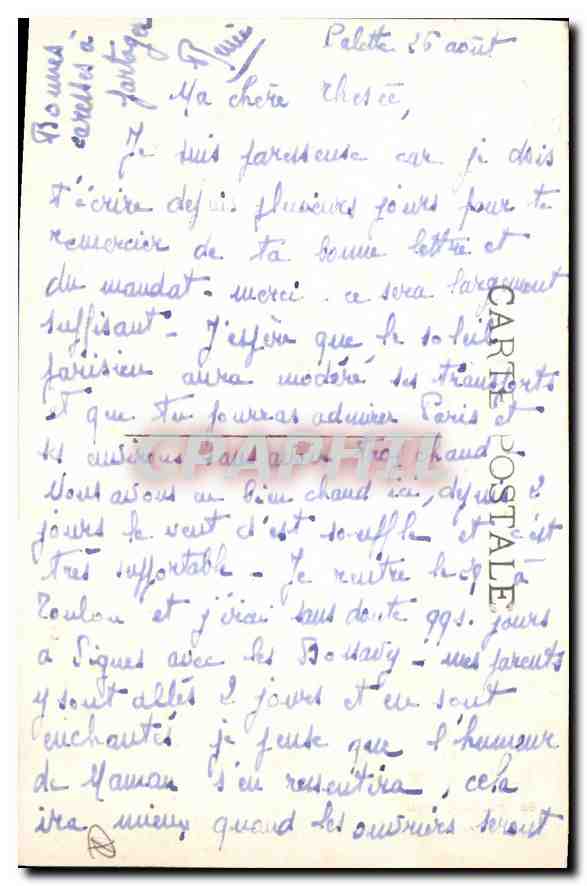 Palette 26 août
Ma chère
Je suis paresseuse car je dois
t'écrire depuis plusieurs jours pour te
remercier de ta bonne lettre et
du mandat - merci - ce sera largement
suffisant - J'espère que le soleil
parisien aura modéré ses transports
et que tu pourras admirer Paris et
ses environs sans avoir trop chaud -
Nous avons eu bien chaud ici, depuis 2
jours le vent s'est soufflé et c'est
très supportable - Je rentre le à
Toulon et j'irai sans doute qqs. jours
à Signes avec les - mes parents
y sont allés 2 jours et en sont
enchantés je pense que l'humeur
de Maman s'en ressentira, cela
ira mieux quand les ouvriers seront
Bonnes
caresses à
partager
CARTE POSTALE
CPAPHIL